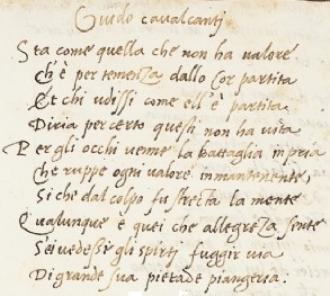 Guido cavalcantj
Sta come quella che non ha valore
Ch'è per temenza dallo Cor partita
Et chi vdissi come ell' è partita
Diria per certo questi non ha vita
Per gli occhi venne la battaglia in pria
Che ruppe ogni valore inmantenente,
Si che dal colpo fu strecta la mente
Qualunque è quei che allegreza sente
Sei vedessi gli spirti fuggir via
Di grande sua pietade piangeria.